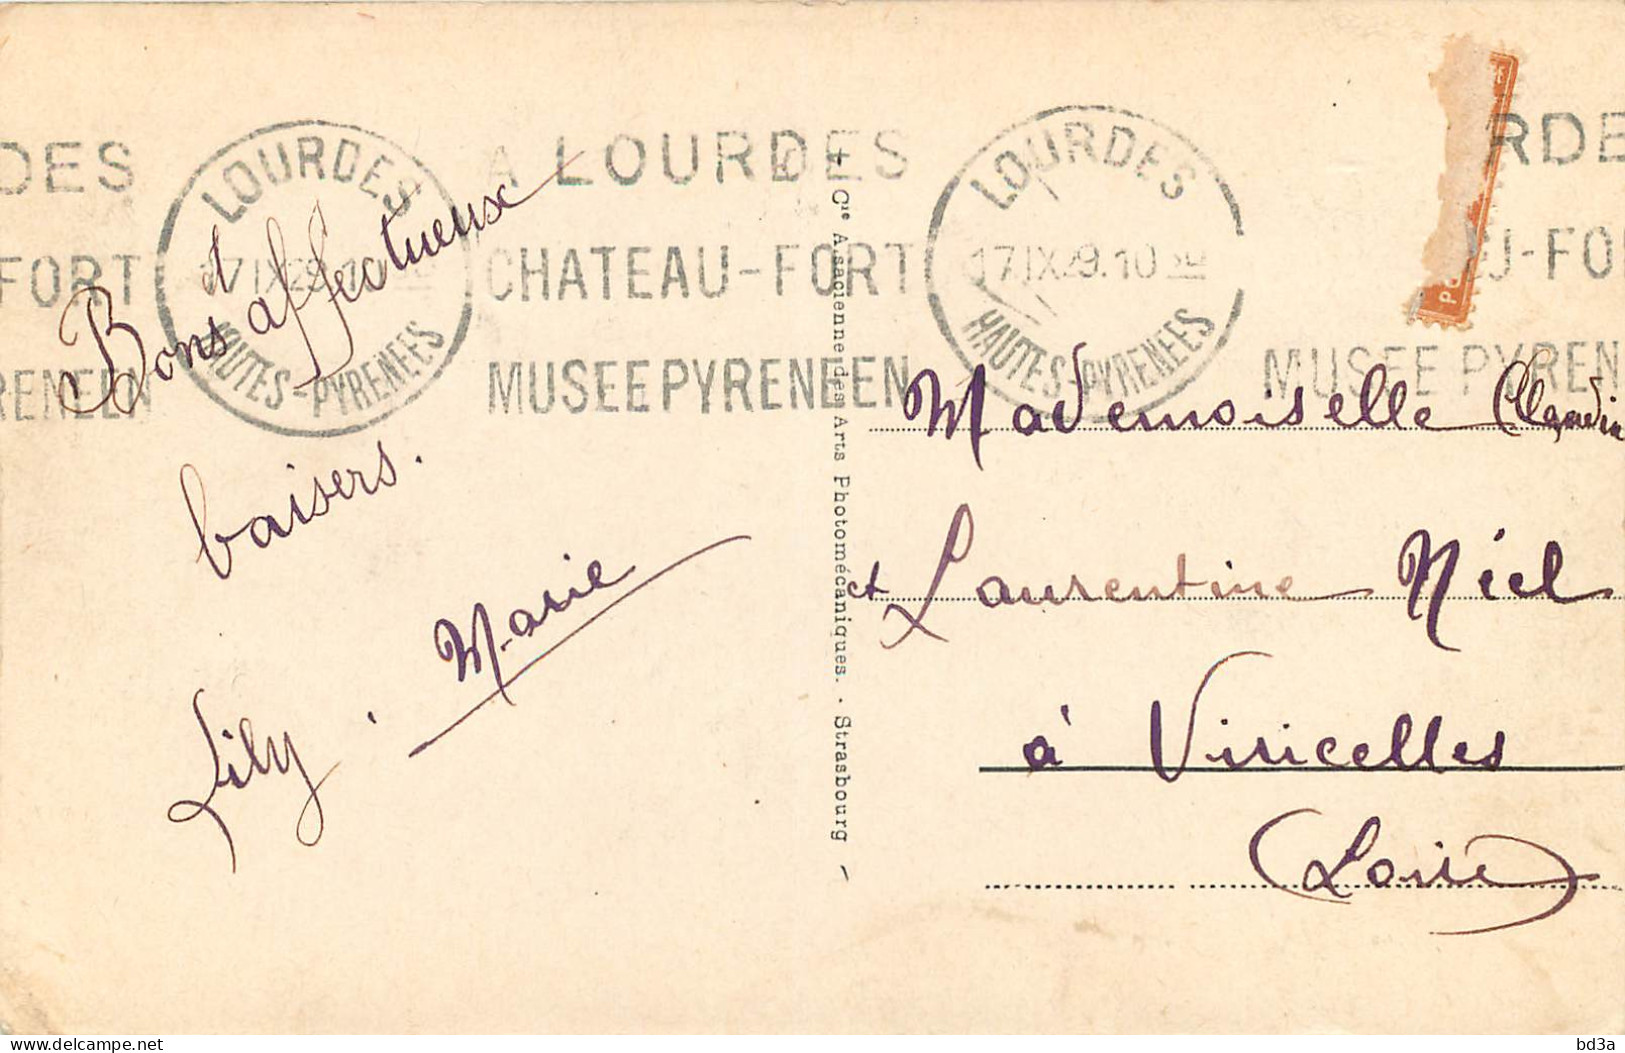 DES
FORT
RENEEN
LOURDES
17 IX 29.10
HAUTES-PYRENEES
A LOURDES
CHATEAU-FORT
MUSEE PYRENEEN
LOURDES
17.IX.29.10
HAUTES-PYRENEES
RDE
U-FO
MUSEE PYREN
PO
Bons et affectueux
baisers.
Marie
Lily.
+ Cie Alsacienne des Arts Photomécaniques. - Strasbourg
Mademoiselle Claudin
et Laurentine Niel
à Viricelles
(Loire)
delcampe.net
bd3a